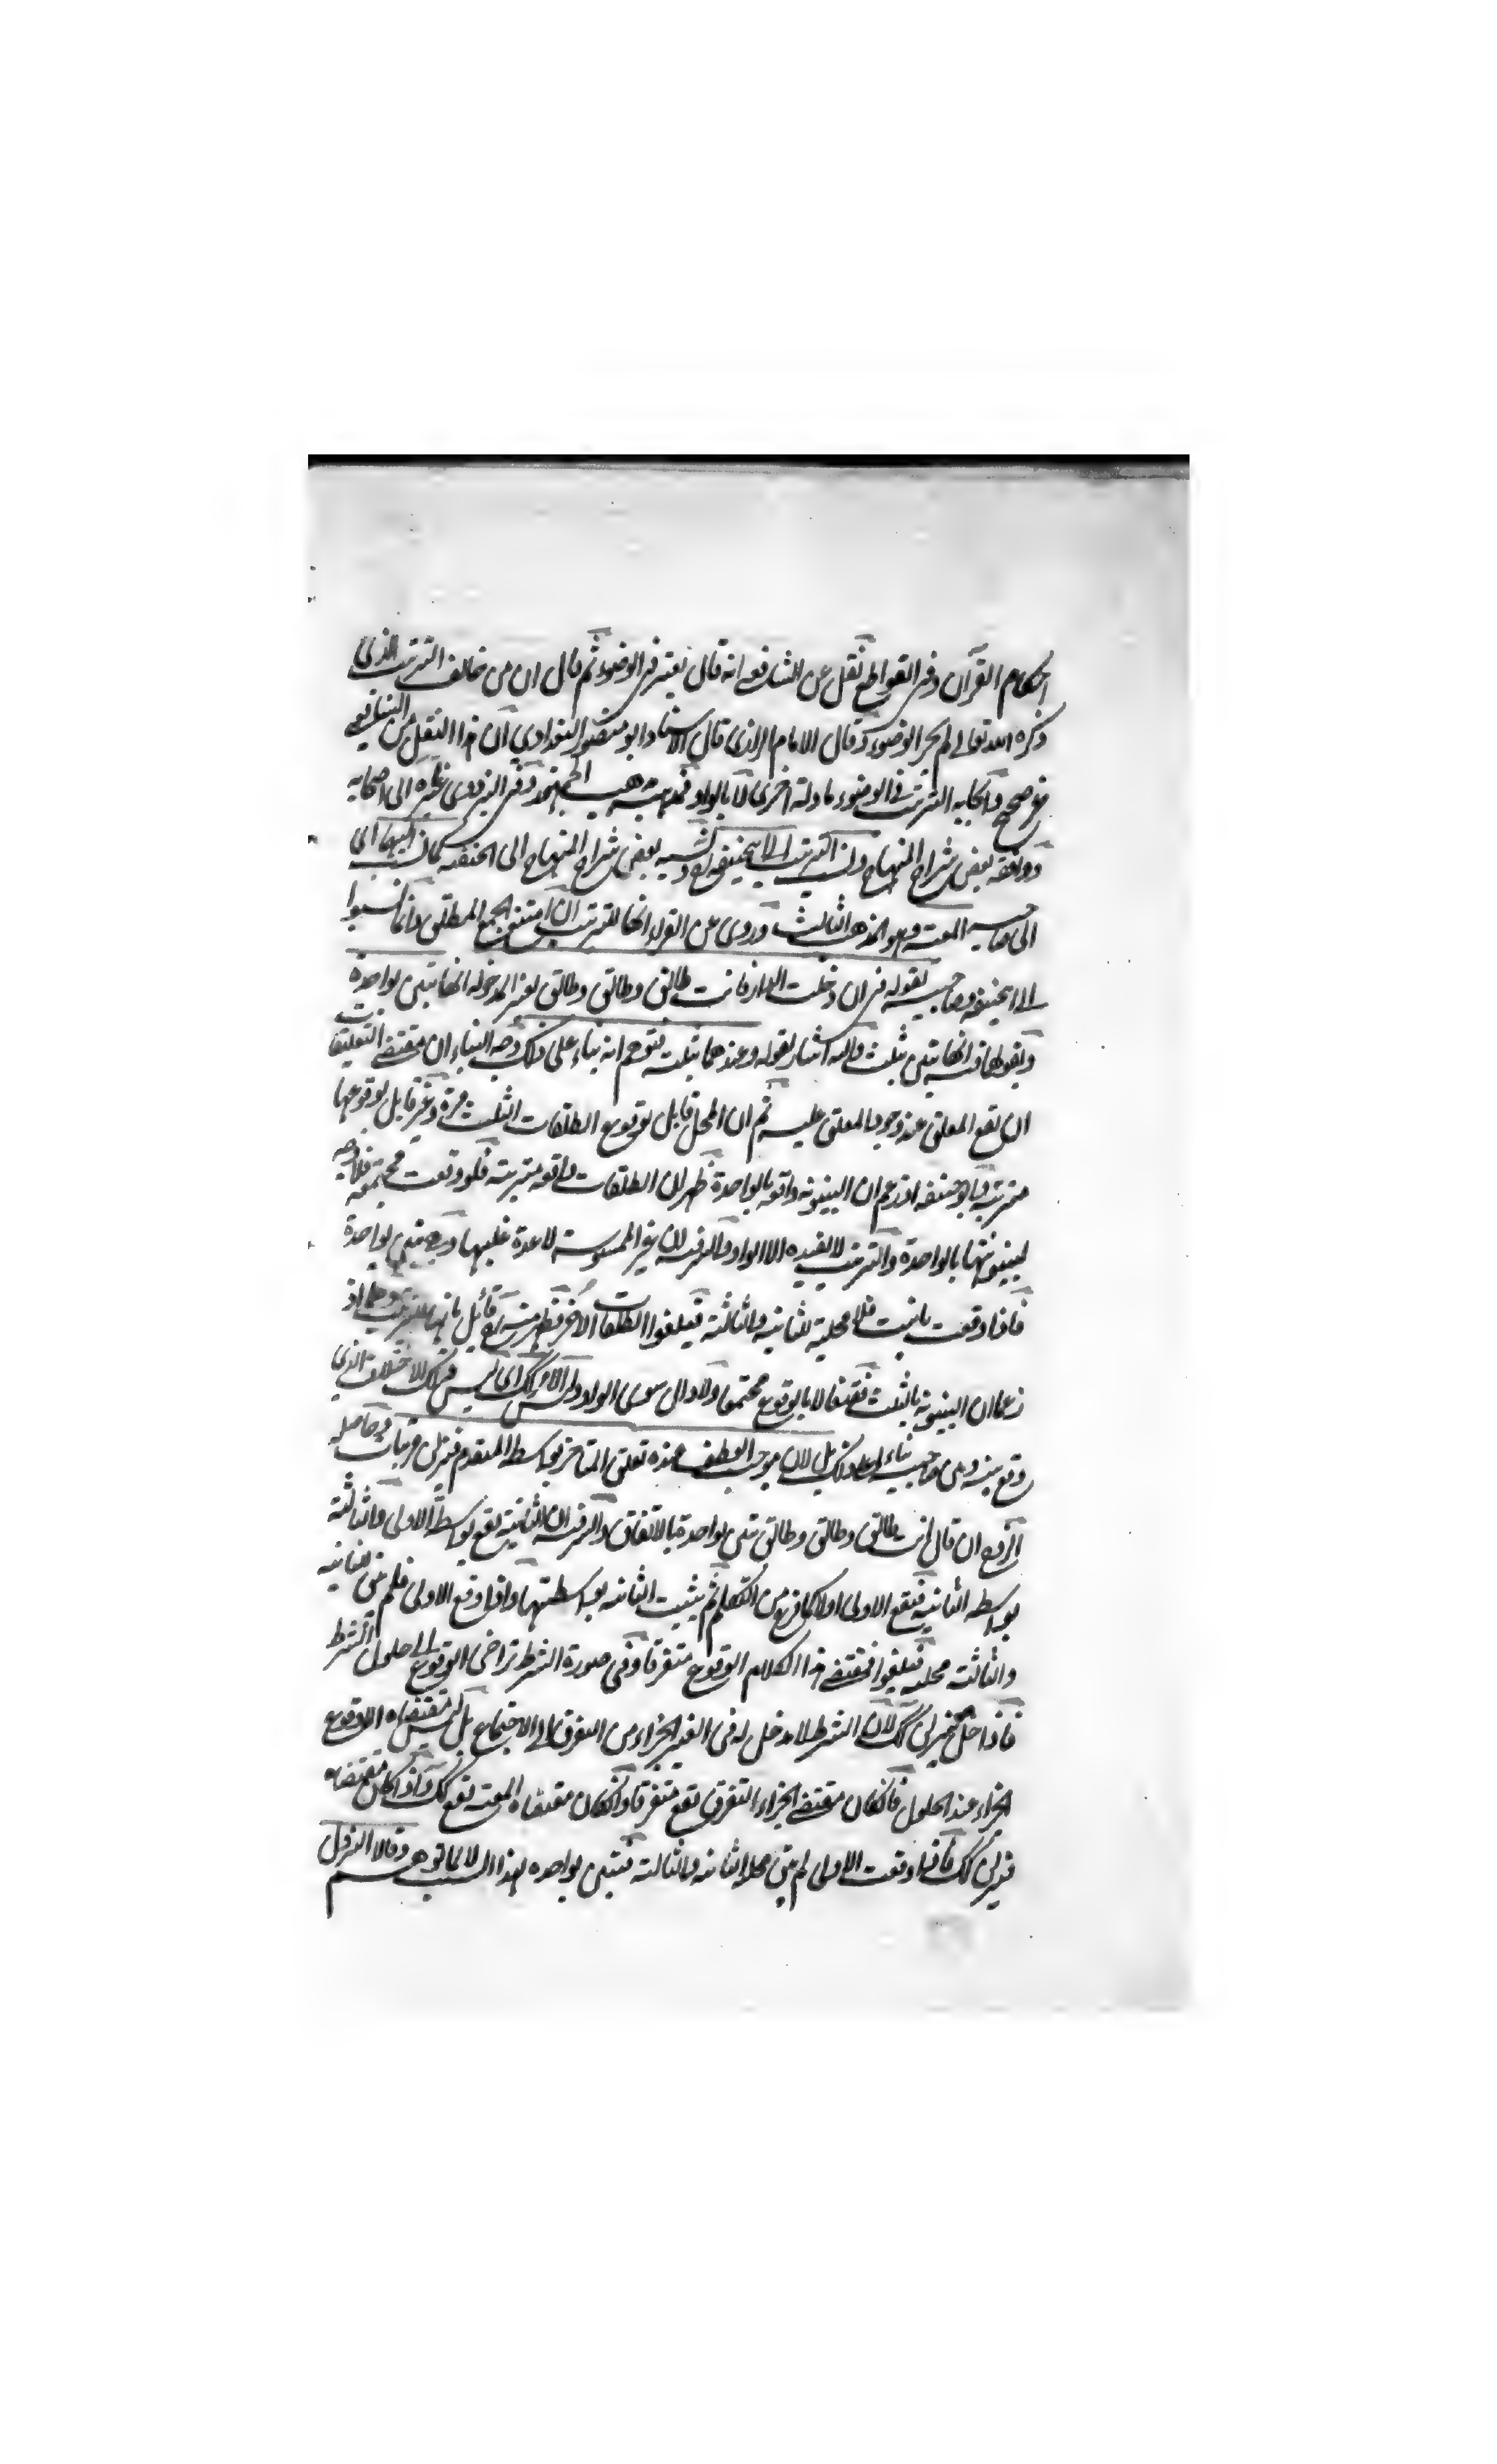 احكام القرآن وفى القواطع نقل عن الشافعى انه قال يعتبر فى الوضوء ثم قال ان من خالف الترتيب الذى
ذكره الله تعالى لم يجز الوضوء وقال الامام الرازى قال الاستاد ابو منصور البغدادى ان هذا النقل من الشافعى
غير صحيح وايجابه الترتيب فى الوضوء بادلة اخرى لا بالواو
ووافقه بعض شراح المنهاج ونسب الترتيب الى ابيحنيفه ونسبه بعض شراح المنهاج الى الحنفيه كما نسب اليهما الى
الى صاحبيه المعية وهو المذهب الثالث وروى عن الفراء انها للترتيب ان امتنع الجمع المطلق وانما نسبوا
الى ابيحنيفه وصاحبيه لقوله فى ان دخلت الدار فانت طالق وطالق وطالق لغير المدخوله انها تبين بواحدة
وبقولهما فيه انها تبين بثلث واليه اشار بقوله وعندهما بثلث فتوهم انه بناء على ذلك وجه البناء ان مقتضى التعليقات
ان يقع المعلق عند وجود المعلق عليه ثم ان المحل قابل لوقوع الطلقات الثلث مرة وغير قابل لوقوعها
مترتبة وابو حنيفه اذ زعم ان البينونه واقعه بالواحدة ظهر ان الطلقات واقعه مترتبة فلو وقعت مجتمعه فلا وجه
لبينونتها بالواحدة والترتيب لا يفيده الا الواو والسرفيه ان غير الممسوسة لا عدة عليها وهى تبين بواحدة
فاذا وقعت بانت فلا محلية للثانيه والثالثة فيلغوا الطلقات الاخر فظهر منه انه قائل بانها للترتيب وهما اذ
زعما ان البينونه بالثلث فقد قالا بالوقوع مجتمعا ولا دال سوى الواو وليس الامر كك اى ليس ذلك الاختلاف الذى
وقع بينه وبين صاحبيه بناء على ذلك بل لان موجب العطف عنده تعلق المتاخر بواسطه المتقدم فينزلن مرتبات وحاصله
انه ان قال انت طالق وطالق وطالق تبين بواحدة بالاتفاق والسرفيه ان الثانيه تقع بواسطة الاولى والثالثة
بواسطه الثانيه فيقع الاولى اولا كما فرغ من التكلم ثم يثبت الثانيه بواسطتها واذا وقع الاولى فلم تبق للثانيه
والثالثة محليه فيلغوا فمقتضى هذا الكلام الوقوع متفرقا وفى صورة الشرط تراخى الوقوع الى حلول الشرط
فاذا حل فينزلن كك لان الشرط لا مدخل له فى تغير الجزاء من التفرق الى الاجتماع بل ليس مقتضاه الا وقوع
الجزاء عند الحلول فان كان مقتضى الجزاء التفرق يقع متفرقا وان كان مقتضاه المعية تقع كك واذا كان مقتضاه
فينزلن كك فاذا وقعت الاولى لم يبق محلا للثانيه والثالثة فتبين بواحده لهذا السبب لا لما توهم وقالا النزول